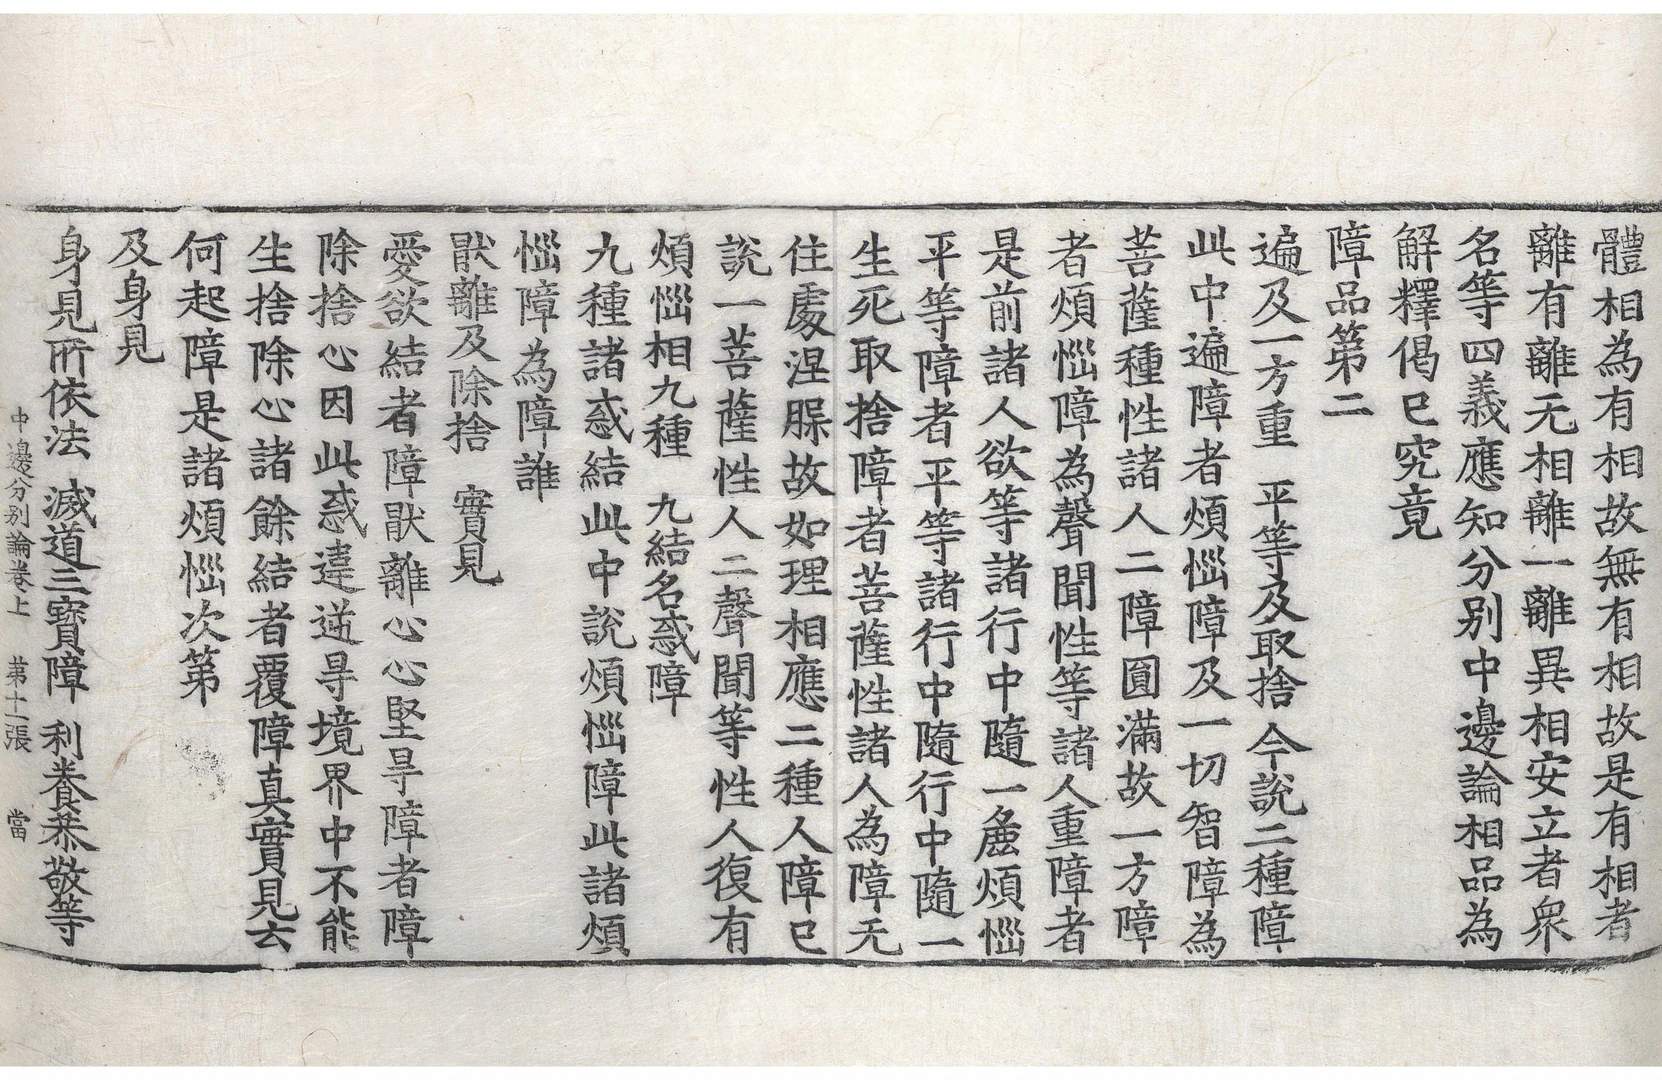 體相為有相故無有相故是有相者
離有離无相離一離異相安立者衆
名等四義應知分別中邊論相品為
解釋偈已究竟
障品第二
遍及一方重　平等及取捨　今說二種障
此中遍障者煩惱障及一切智障為
菩薩種性諸人二障圓滿故一方障
者煩惱障為聲聞性等諸人重障者
是前諸人欲等諸行中隨一麁煩惱
平等障者平等諸行中隨行中隨一
生死取捨障者菩薩性諸人為障无
住處涅槃故如理相應二種人障已
說一菩薩性人二聲聞等性人復有
煩惱相九種　九結名惑障
九種諸惑結此中說煩惱障此諸煩
惱障為障誰
猒離及除捨　實見
愛欲結者障猒離心心堅㝵障者障
除捨心因此惑違逆㝵境界中不能
生捨除心諸餘結者覆障真實見云
何起障是諸煩惱次第
及身見
身見所依法　滅道三寶障　利養恭敬等
中邊分別論卷上　第十一張　當